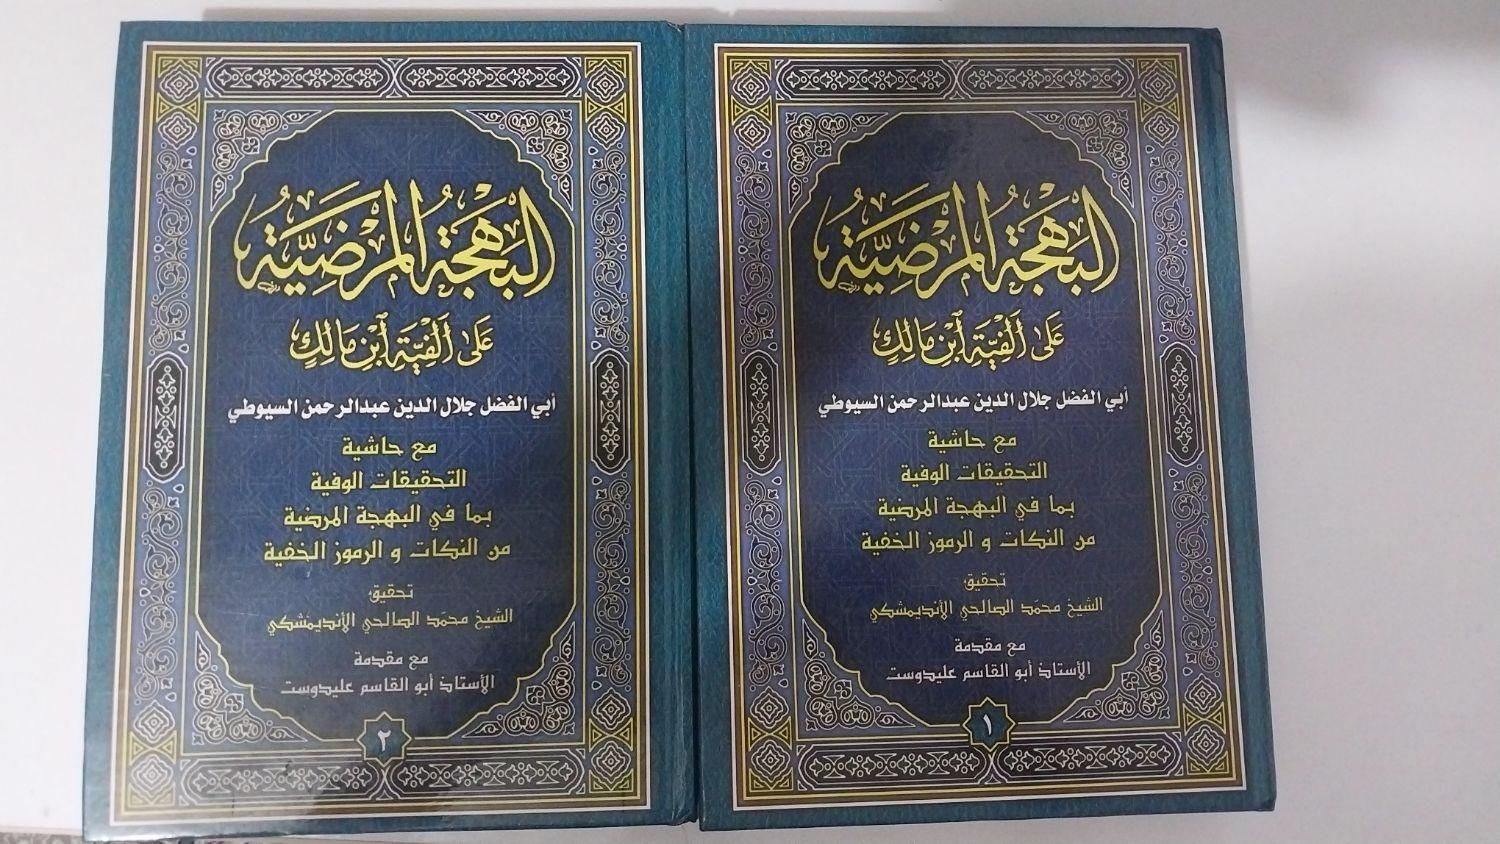 البَهْجَةُ المَرْضِيَّةُ
عَلىٰ أَلفِيَّةِ اَبْنِ مَالِكٍ
أبي الفضل جلال الدين عبدالرحمن السيوطي
مع حاشية
التحقيقات الوفية
بما في البهجة المرضية
من النكات و الرموز الخفية
تحقيق
الشيخ محمّد الصالحي الأنديمشكي
مع مقدمة
الأستاذ أبو القاسم عليدوست
١
البَهْجَةُ المَرْضِيَّةُ
عَلىٰ أَلفِيَّةِ اَبْنِ مَالِكٍ
أبي الفضل جلال الدين عبدالرحمن السيوطي
مع حاشية
التحقيقات الوفية
بما في البهجة المرضية
من النكات و الرموز الخفية
تحقيق
الشيخ محمّد الصالحي الأنديمشكي
مع مقدمة
الأستاذ أبو القاسم عليدوست
٢